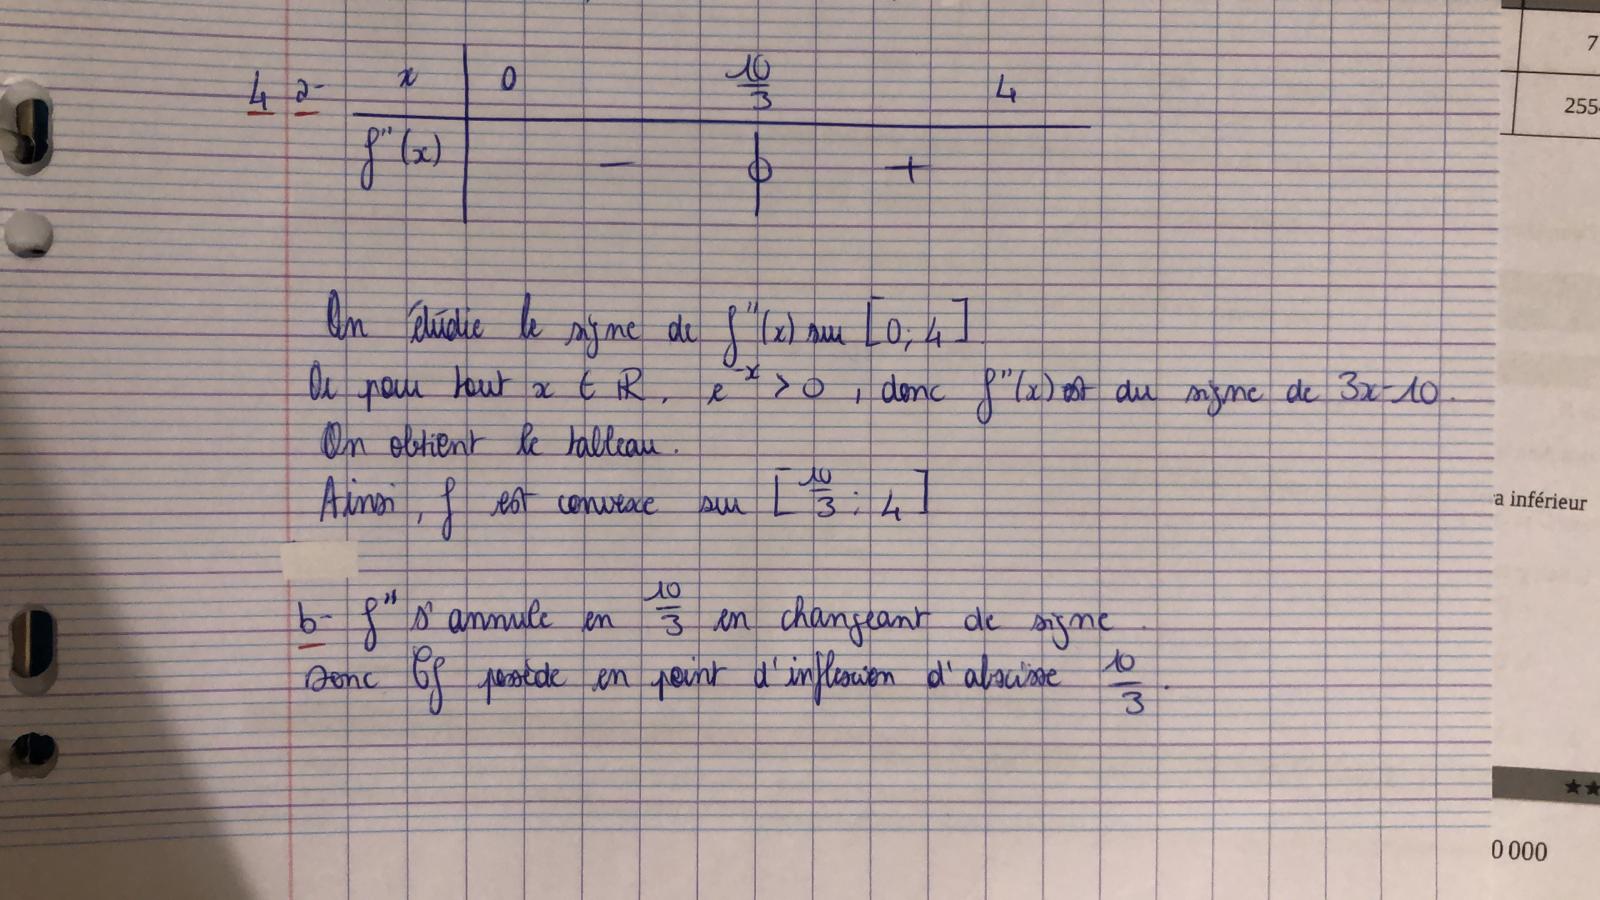 4 a- x 0 10/3 4
f''(x) - 0 +
On étudie le signe de f''(x) sur [0; 4]
Or pour tout x ∈ ℝ, e^-x > 0, donc f''(x) est du signe de 3x-10.
On obtient le tableau.
Ainsi, f est convexe sur [10/3 ; 4]
b- f'' s'annule en 10/3 en changeant de signe.
Donc Cf possède en point d'inflexion d'abscisse 10/3.
7
255
a inférieur
★★
0 000